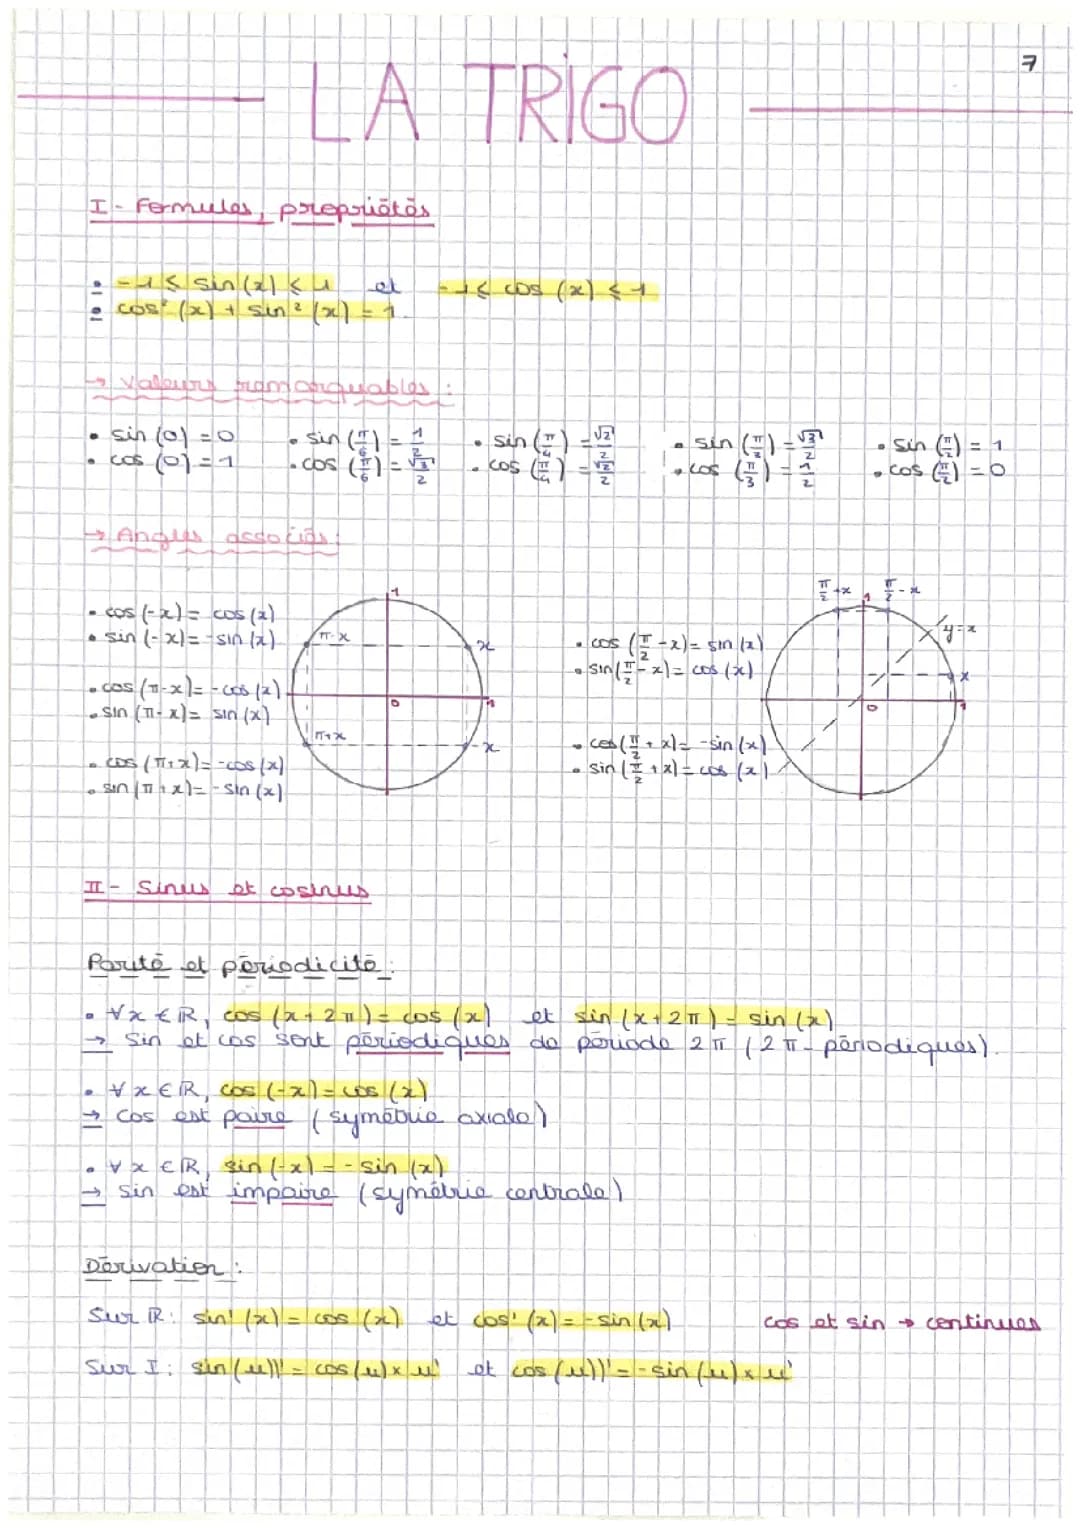 7
LA TRIGO
I - Formules, propriétés
• -1 ≤ sin(x) ≤ 1 et -1 ≤ cos (x) ≤ 1
• cos² (x) + sin² (x) = 1.
→ Valeurs remarquables :
• sin (0) = 0 • sin (π/6) = 1/2 • sin (π/4) = √2/2 • sin (π/3) = √3/2 • sin (π/2) = 1
• cos (0) = 1 • cos (π/6) = √3/2 • cos (π/4) = √2/2 • cos (π/3) = 1/2 • cos (π/2) = 0
→ Angles associés :
• cos (-x) = cos (x)
• sin (-x) = -sin (x)
• cos (π-x) = -cos (x)
• sin (π-x) = sin (x)
• cos (π+x) = -cos (x)
• sin (π+x) = -sin (x)
1
π-x
x
0
1
π+x
-x
• cos (π/2 -x) = sin (x)
• sin (π/2 - x) = cos (x)
• cos (π/2 + x) = -sin (x)
• sin (π/2 + x) = cos (x)
π/2 +x
1
π/2 - x
y=x
x
0
1
II - Sinus et cosinus
Parité et périodicité :
• ∀x ∈ ℝ, cos (x+2π) = cos (x) et sin (x+2π) = sin (x)
→ Sin et cos sont périodiques de période 2π (2π-périodiques).
• ∀x ∈ ℝ, cos (-x) = cos (x)
→ cos est paire (symétrie axiale)
• ∀ x ∈ ℝ, sin (-x) = - sin (x)
→ sin est impaire (symétrie centrale)
Dérivation :
Sur ℝ : sin' (x) = cos (x) et cos' (x) = -sin (x) cos et sin → continues
Sur I : sin (u))' = cos (u) x u' et cos (u))' = -sin (u) x u'